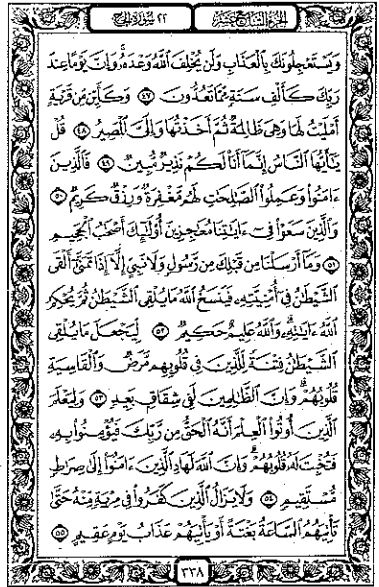 الجزء السابع عشر
٢٢ سورة الحج
وَيَسْتَعْجِلُونَكَ بِٱلْعَذَابِ وَلَن يُخْلِفَ ٱللَّهُ وَعْدَهُۥ وَإِنَّ يَوْمًا عِندَ
رَبِّكَ كَأَلْفِ سَنَةٍ مِّمَّا تَعُدُّونَ ٤٧ وَكَأَيِّن مِّن قَرْيَةٍ
أَمْلَيْتُ لَهَا وَهِىَ ظَالِمَةٌ ثُمَّ أَخَذْتُهَا وَإِلَىَّ ٱلْمَصِيرُ ٤٨ قُلْ
يَٰٓأَيُّهَا ٱلنَّاسُ إِنَّمَآ أَنَا۠ لَكُمْ نَذِيرٌ مُّبِينٌ ٤٩ فَٱلَّذِينَ
ءَامَنُوا۟ وَعَمِلُوا۟ ٱلصَّٰلِحَٰتِ لَهُم مَّغْفِرَةٌ وَرِزْقٌ كَرِيمٌ ٥٠
وَٱلَّذِينَ سَعَوْا۟ فِىٓ ءَايَٰتِنَا مُعَٰجِزِينَ أُو۟لَٰٓئِكَ أَصْحَٰبُ ٱلْجَحِيمِ
٥١ وَمَآ أَرْسَلْنَا مِن قَبْلِكَ مِن رَّسُولٍ وَلَا نَبِىٍّ إِلَّآ إِذَا تَمَنَّىٰٓ أَلْقَى
ٱلشَّيْطَٰنُ فِىٓ أُمْنِيَّتِهِۦ فَيَنسَخُ ٱللَّهُ مَا يُلْقِى ٱلشَّيْطَٰنُ ثُمَّ يُحْكِمُ
ٱللَّهُ ءَايَٰتِهِۦ وَٱللَّهُ عَلِيمٌ حَكِيمٌ ٥٢ لِّيَجْعَلَ مَا يُلْقِى
ٱلشَّيْطَٰنُ فِتْنَةً لِّلَّذِينَ فِى قُلُوبِهِم مَّرَضٌ وَٱلْقَاسِيَةِ
قُلُوبُهُمْ وَإِنَّ ٱلظَّٰلِمِينَ لَفِى شِقَاقٍۭ بَعِيدٍ ٥٣ وَلِيَعْلَمَ
ٱلَّذِينَ أُوتُوا۟ ٱلْعِلْمَ أَنَّهُ ٱلْحَقُّ مِن رَّبِّكَ فَيُؤْمِنُوا۟ بِهِۦ
فَتُخْبِتَ لَهُۥ قُلُوبُهُمْ وَإِنَّ ٱللَّهَ لَهَادِ ٱلَّذِينَ ءَامَنُوٓا۟ إِلَىٰ صِرَٰطٍ
مُّسْتَقِيمٍ ٥٤ وَلَا يَزَالُ ٱلَّذِينَ كَفَرُوا۟ فِى مِرْيَةٍ مِّنْهُ حَتَّىٰ
تَأْتِيَهُمُ ٱلسَّاعَةُ بَغْتَةً أَوْ يَأْتِيَهُمْ عَذَابُ يَوْمٍ عَقِيمٍ ٥٥
٣٣٨